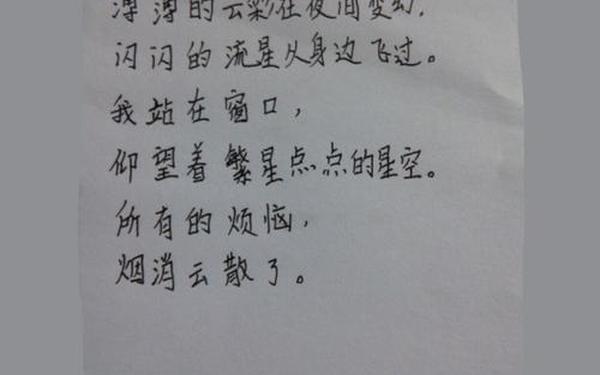 薄薄的云彩在夜间变幻,
闪闪的流星从身边飞过。
我站在窗口,
仰望着繁星点点的星空。
所有的烦恼,
烟消云散了。